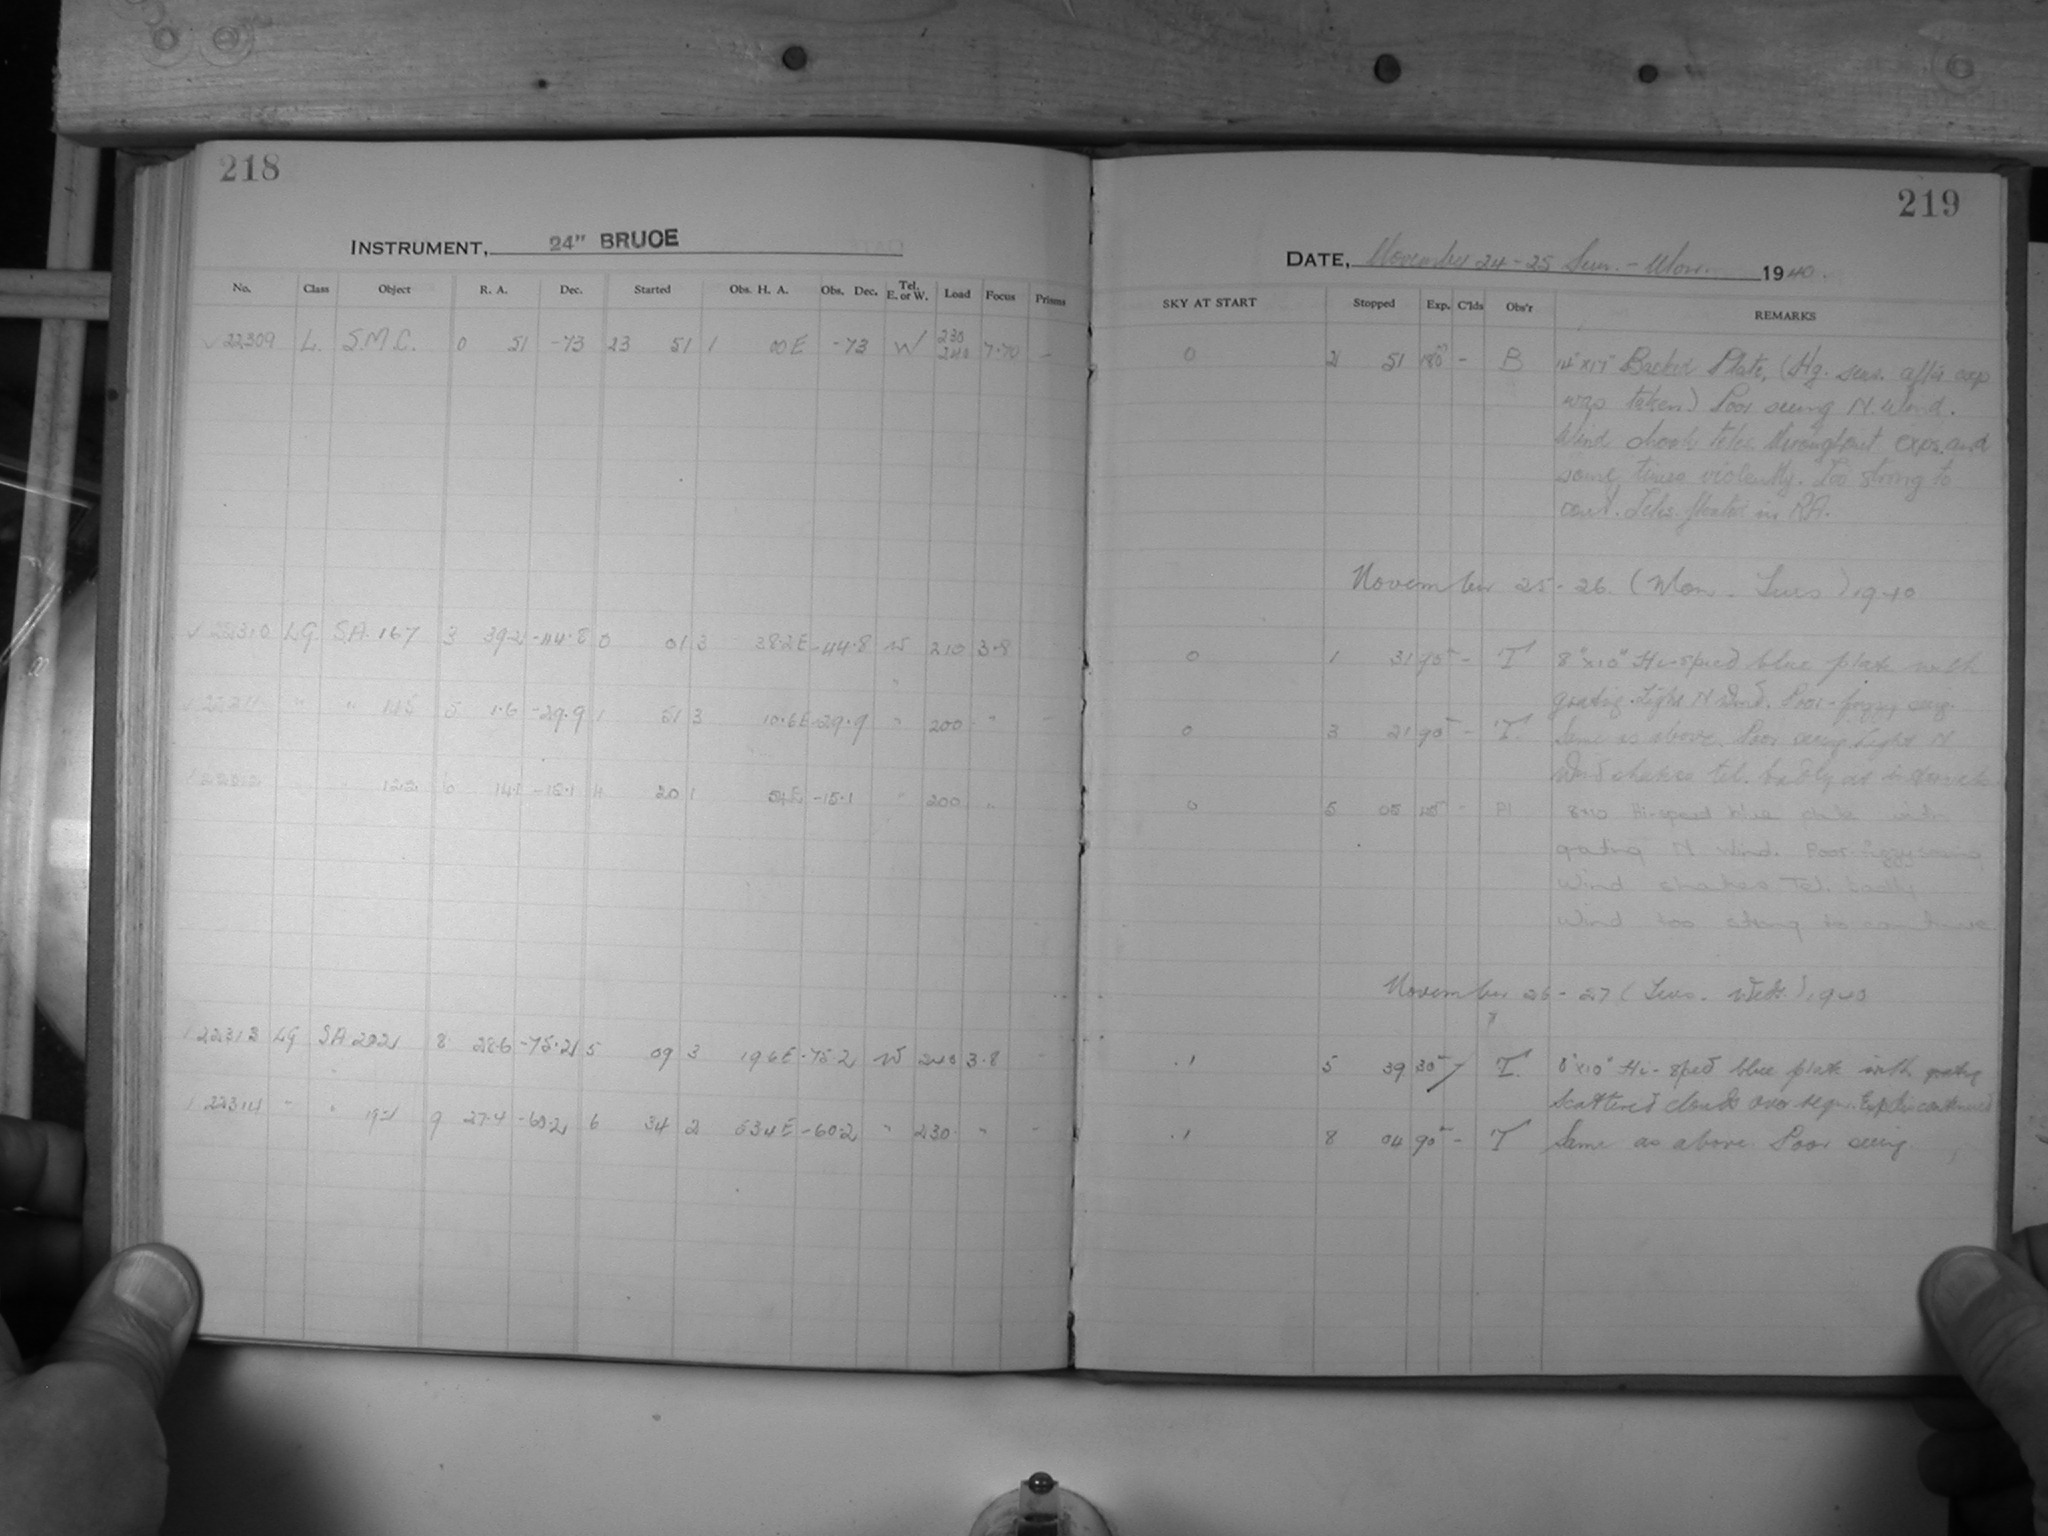 218
INSTRUMENT, 24" BRUCE
No. Class Object R. A. Dec. Started Obs. H. A. Obs. Dec. Tel. E. or W. Load Focus Prisms
22309 L. S.M.C. 0 51 -73 23 51 1 00 E -73 W 230 240 7.70 -
22310 LG SA 167 3 39.2 -44.8 0 01 3 38.2E -44.8 W 210 3.8
" " 145 5 1.6 -29.9 1 51 3 10.6E -29.9 " 200 " -
" 122 6 14.1 -15.1 4 20 1 54E -15.1 " 200 "
22313 LG SA 202 8 28.6 -75.2 5 09 3 19.6E -75.2 W 240 3.8 -
22314 " " 194 9 27.4 -60.2 6 34 2 53.4E -60.2 " 230 " -
219
DATE, November 24-25 Sun. - Mon. 1940.
SKY AT START Stopped Exp. C'lds Obs'r REMARKS
0 2 51 180 - B 14"x17" Backed Plate, (Hg. sens. after exp
was taken) Poor seeing N. Wind.
Wind shook teles. throughout exps. and
some times violently. Too strong to
cont. Teles. in RA.
November 25-26. (Mon. Tues) 1940
0 1 31 90 - T 8"x10" Hi-speed blue plate with
grating. Light N Wind. Poor - foggy
0 3 21 90 - T. Same as above. Poor seeing. Light N
Wind shakes tel. badly at
0 5 05 45 - 8x10 Hi-speed blue plate with
grating N Wind. Poor seeing
Wind shakes Tel. badly
Wind too strong to continue
November 26-27 (Tues. Wed.) 1940
.1 5 39 30 T. 8"x10" Hi-speed blue plate with grating
Scattered clouds over
.1 8 04 90 - T Same as above. Poor seeing.